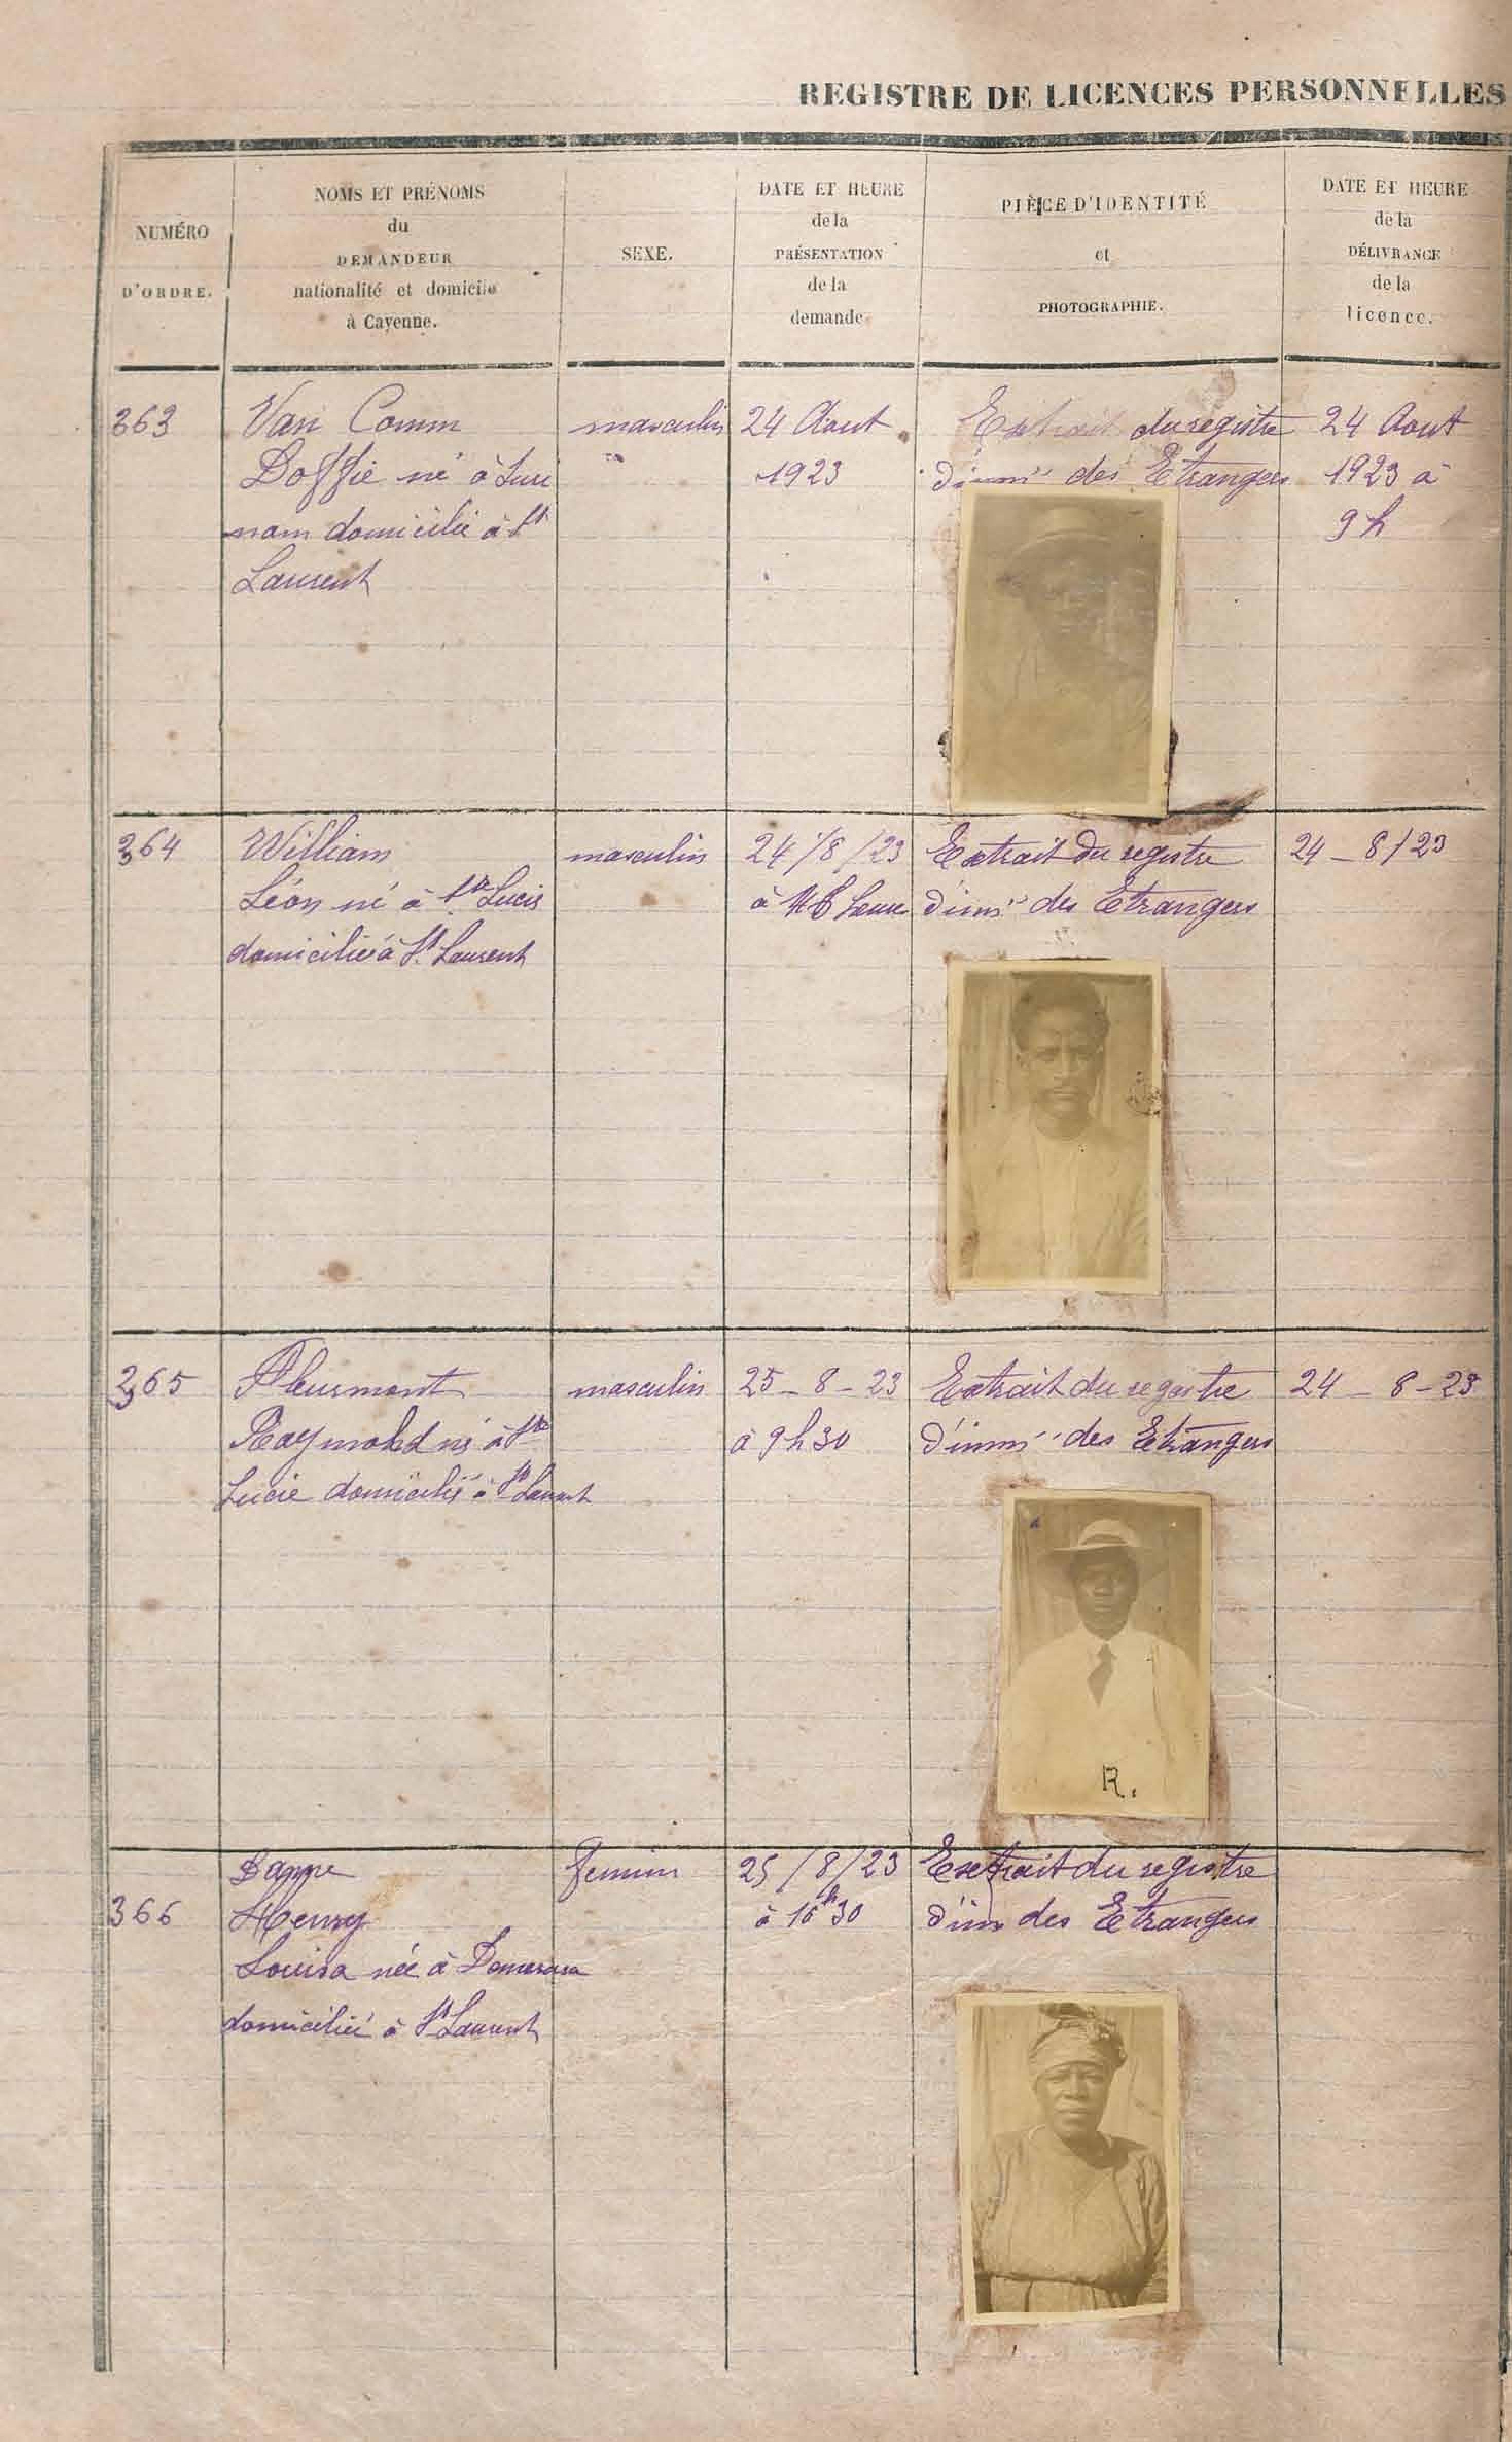 REGISTRE DE LICENCES PERSONNELLES
NUMÉRO
D'ORDRE.
NOMS ET PRÉNOMS
du
DEMANDEUR
nationalité et domicile
à Cayenne.
SEXE.
DATE ET HEURE
de la
PRÉSENTATION
de la
demande
PIÈCE D'IDENTITÉ
et
PHOTOGRAPHIE.
DATE ET HEURE
de la
DÉLIVRANCE
de la
licence.
363
Van Comm
Doffie né à Suri
nam domicilié à St
Laurent
masculin
24 Aout
1923
Extrait du registre
d'imm des Etrangers
24 Aout
1923 à
9 h
364
William
Léon né à Ste Lucie
domicilié à St Laurent
masculin
24/8/23
à
Extrait du registre
d'imm des Etrangers
24 - 8/23
365
Fleurmont
Raymond né à Ste
Lucie domicilié à St Laurent
masculin
25 - 8 - 23
à 9 h 30
Extrait du registre
d'imm des Etrangers
24 - 8 - 23
R.
366
Henry
Louisa née à Demerara
domiciliée à St Laurent
feminin
25/8/23
à 10 h 30
Extrait du registre
d'imm des Etrangers